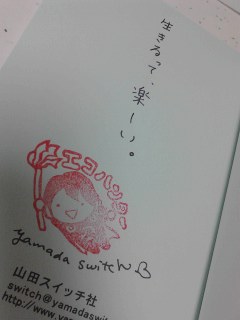 生きるって、楽しい。
エコハンター
yamada switch
山田スイッチ社
switch@yamadaswit
http://www.ya